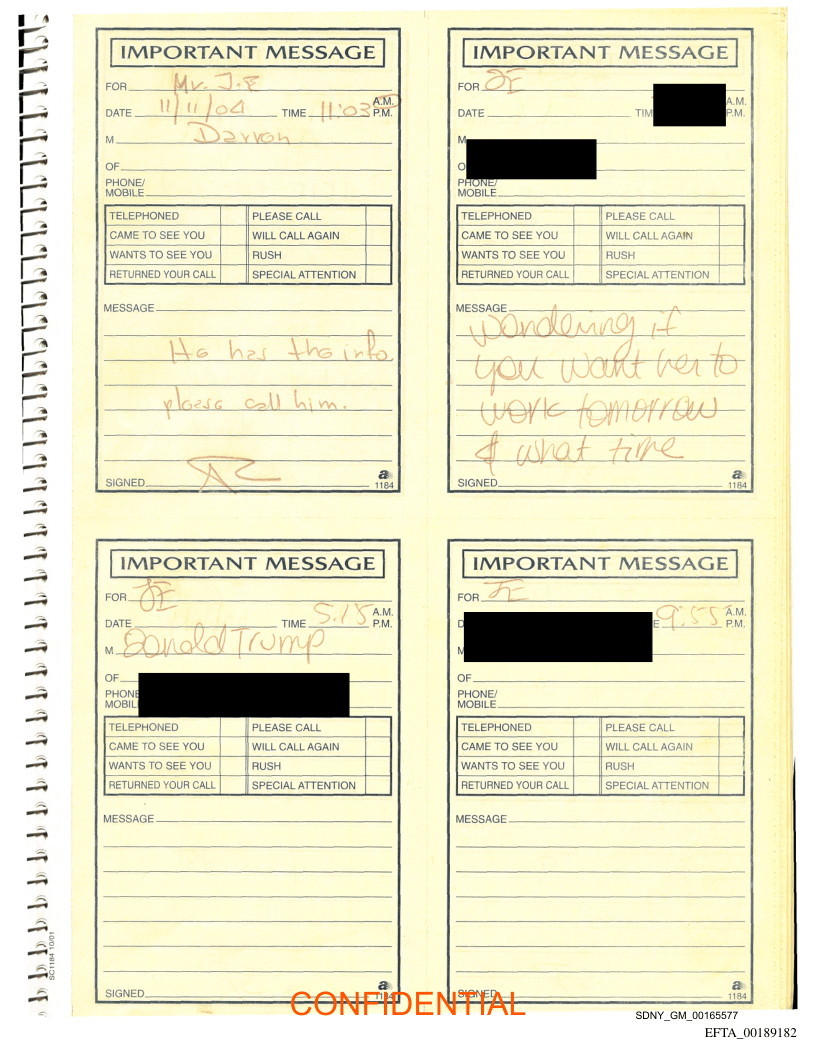 IMPORTANT MESSAGE
FOR Mr. J.E
DATE 11/11/04 TIME 11:03 A.M. P.M.
M Darren
OF
PHONE/
MOBILE
TELEPHONED PLEASE CALL
CAME TO SEE YOU WILL CALL AGAIN
WANTS TO SEE YOU RUSH
RETURNED YOUR CALL SPECIAL ATTENTION
MESSAGE
He has the info.
please call him.
SIGNED
a
1184
IMPORTANT MESSAGE
FOR JE
DATE TIM A.M.
P.M.
M
O
PHONE/
MOBILE
TELEPHONED PLEASE CALL
CAME TO SEE YOU WILL CALL AGAIN
WANTS TO SEE YOU RUSH
RETURNED YOUR CALL SPECIAL ATTENTION
MESSAGE
wondering if
you want her to
work tomorrow
& what time
SIGNED
a
1184
IMPORTANT MESSAGE
FOR JE
DATE TIME 5:15 A.M. P.M.
M Donald Trump
OF
PHONE
MOBIL
TELEPHONED PLEASE CALL
CAME TO SEE YOU WILL CALL AGAIN
WANTS TO SEE YOU RUSH
RETURNED YOUR CALL SPECIAL ATTENTION
MESSAGE
SIGNED
a
1184
IMPORTANT MESSAGE
FOR JE
D E 9:55 A.M. P.M.
M
OF
PHONE/
MOBILE
TELEPHONED PLEASE CALL
CAME TO SEE YOU WILL CALL AGAIN
WANTS TO SEE YOU RUSH
RETURNED YOUR CALL SPECIAL ATTENTION
MESSAGE
SIGNED
a
1184
SC1184 10/01
CONFIDENTIAL
SDNY_GM_00165577
EFTA_00189182